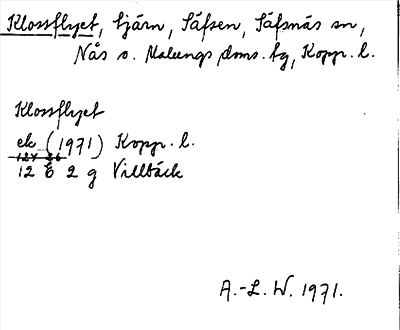 Klossflyet, tjärn, Säfsen, Säfsnäs sn,
Nås o. Malungs doms. tg, Kopp. l.
Klossflyet
ek (1971) Kopp. l.
12 E 2 g Villbäck
A.-L. W. 1971.